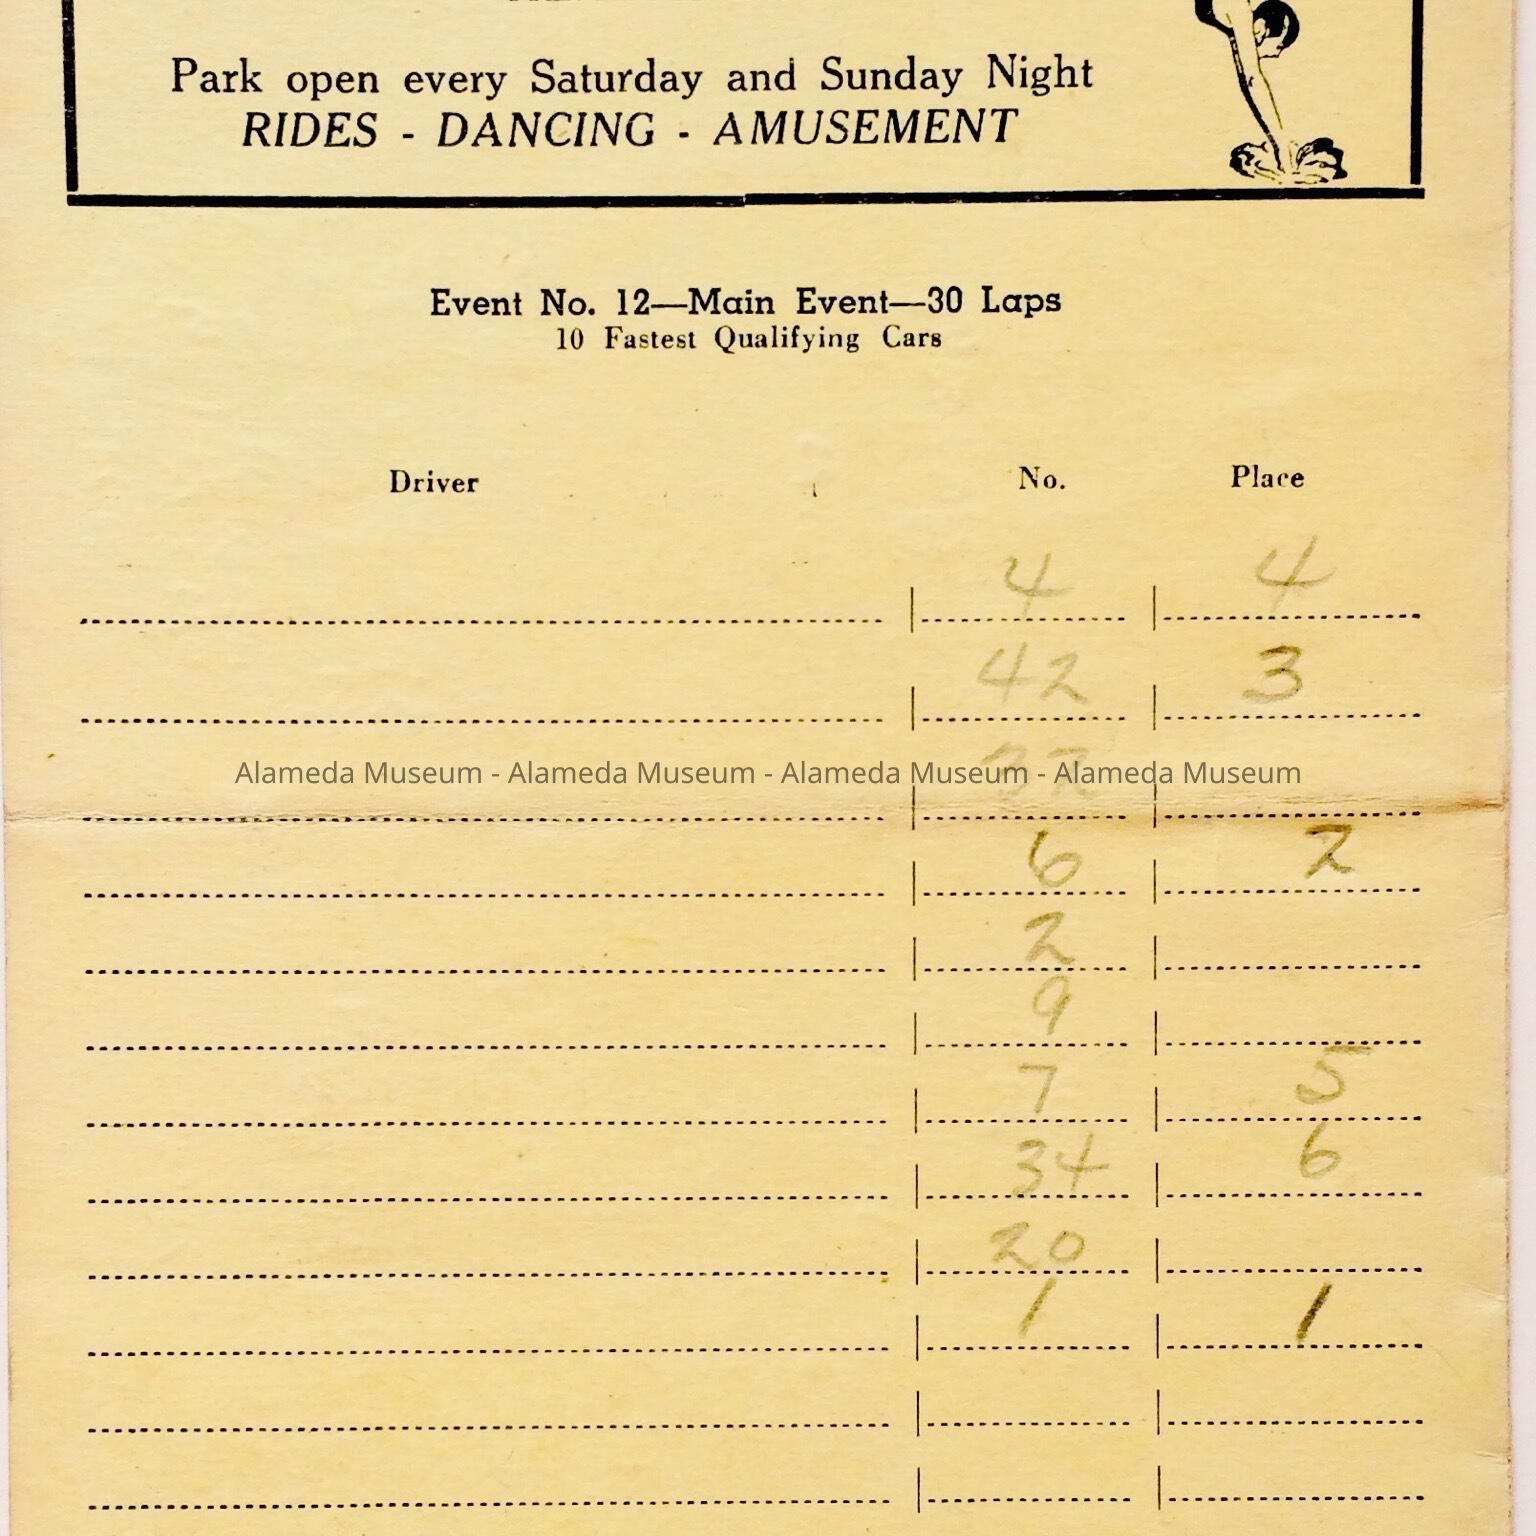 Park open every Saturday and Sunday Night
RIDES - DANCING - AMUSEMENT
Event No. 12—Main Event—30 Laps
10 Fastest Qualifying Cars
Driver No. Place
4 4
42 3
Alameda Museum - Alameda Museum - Alameda Museum - Alameda Museum
6 2
2
9
7 5
34 6
20
1 1